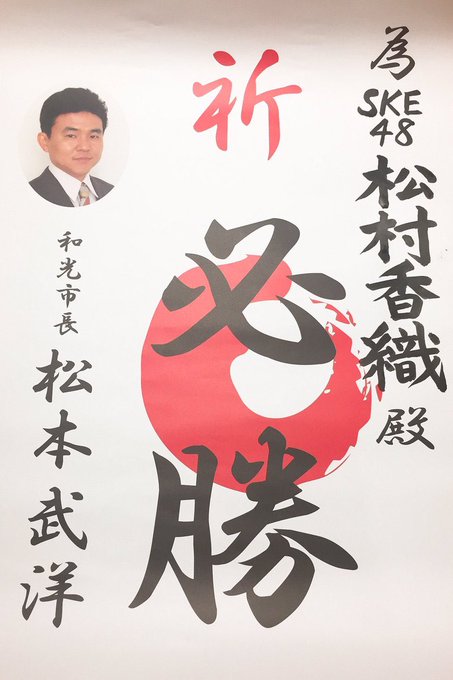 為 SKE48 松村香織 殿
祈
必勝
和光市長 松本武洋